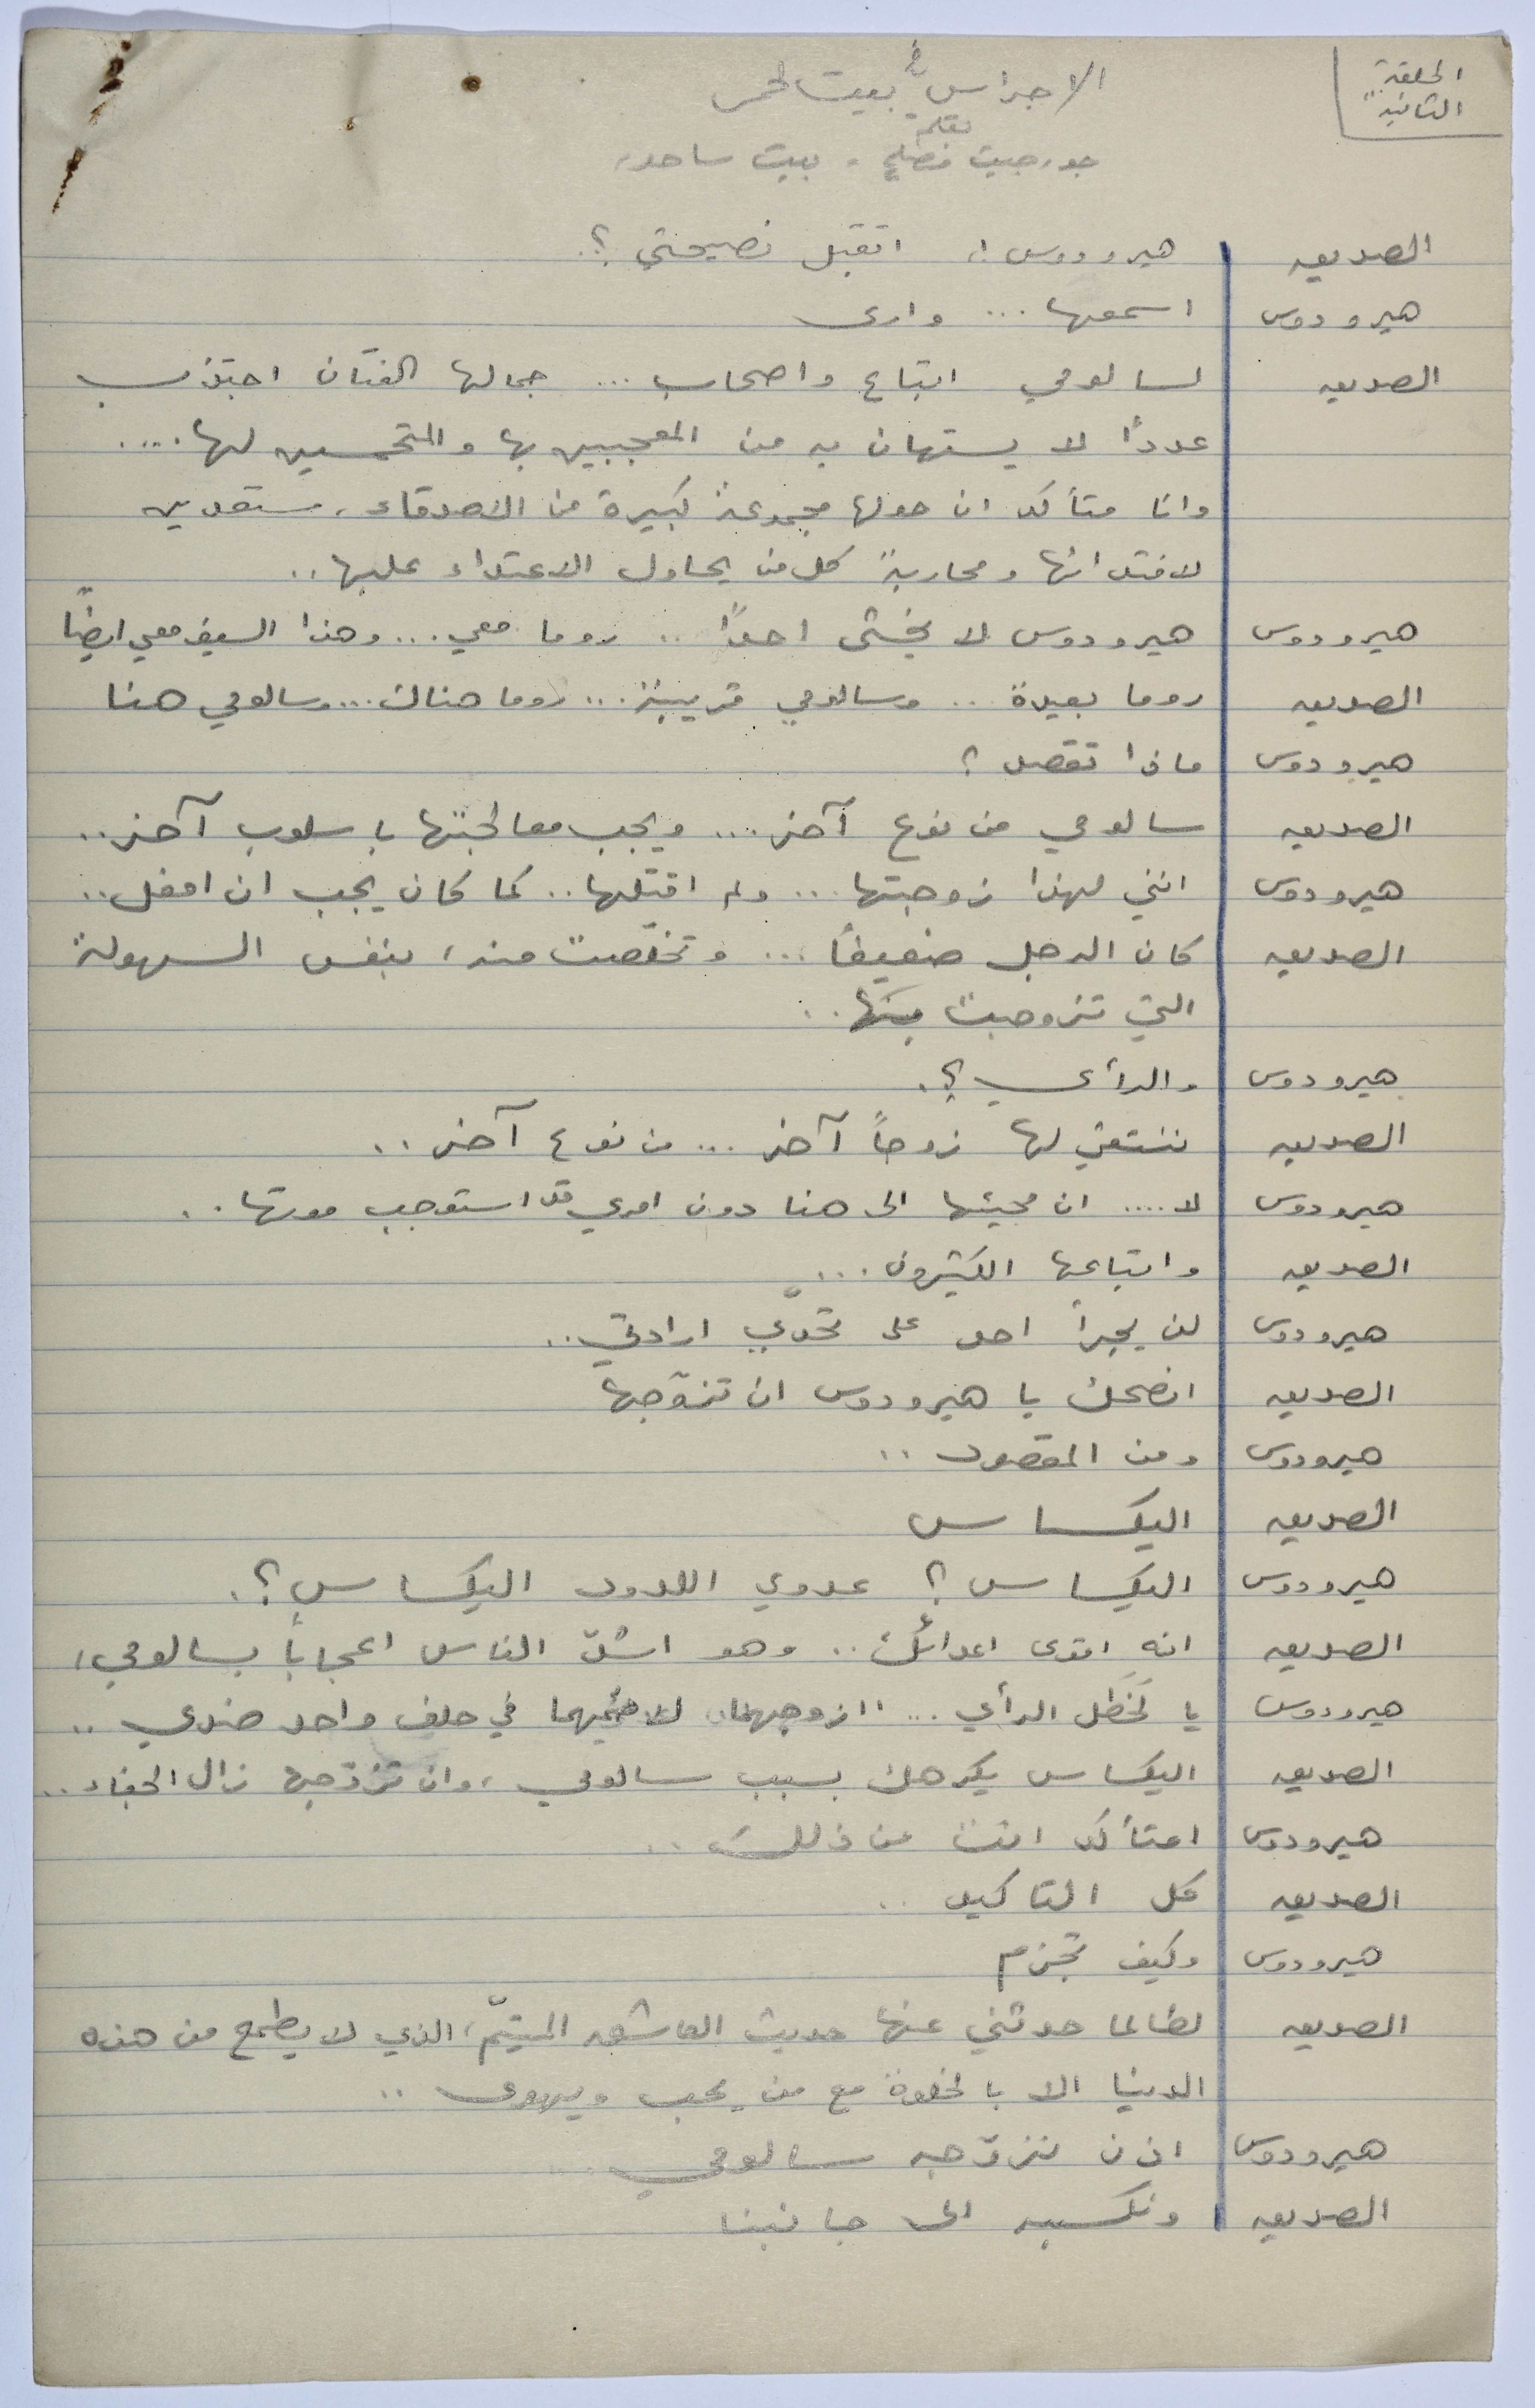 الحلقة
الثانية
الاجراس في بيت لحم
بقلم
جورجيت فضلي - بيت ساحور
الصديق هيرودوس !. اتقبل نصيحتي ؟.
هيرودوس اسمعها ... وارى
الصديق لسالومي اتباع واصحاب ... جمالها الفتان اجتذب
عدداً لا يستهان به من المعجبين بها والمتحمسين لها ....
وانا متأكد ان حولها مجموعة كبيرة من الاصدقاء ، مستعدين
لافتدائها ومحاربة كل من يحاول الاعتداء عليها ..
هيرودوس هيرودوس لا يخشى احداً .. روما معي ... وهذا السيف معي ايضاً
الصديق روما بعيدة .. وسالومي قريبة ... روما هناك ... وسالومي هنا
هيرودوس ماذا تقصد ؟
الصديق سالومي من نوع آخر .... ويجب معالجتها باسلوب آخر ..
هيرودوس انني لهذا زوجتها ... ولم اقتلها .. كما كان يجب ان افعل ..
الصديق كان الرجل ضعيفاً ... وتخلّصت منه ، بنفس السهولة
التي تزوجت بها ..
هيرودوس والرأي ؟.
الصديق ننتقي لها زوجاً آخر ... من نوع آخر ..
هيرودوس لا .... ان مجيئها الى هنا دون امري قد استوجب موتها ..
الصديق واتباعها الكثيرون ...
هيرودوس لن يجرأ احد على تحدّي ارادتي ..
الصديق انصحك يا هيرودوس ان تزوّجها
هيرودوس ومن المقصود ..
الصديق اليكساس
هيرودوس اليكساس ؟ عدوي اللدود اليكساس ؟.
الصديق انه اقوى اعدائك .. وهو اشدّ الناس اعجاباً بسالومي ،
هيرودوس يا لخَطَل الرأي ... ازوجهما لاضمّهما في حلف واحد ضدي ..
الصديق اليكساس يكرهك بسبب سالومي ، وان تزوّجها زال الجفاء ..
هيرودوس امتأكد انت من ذلك ..
الصديق كل التاكيد ..
هيرودوس وكيف تجزم
الصديق لطالما حدثني عنها حديث العاشق المتيّم ، الذي لا يطمح من هذه
الدنيا الا بالخلوة مع من يحب ويهوى ..
هيرودوس اذن نزوّجه سالومي ...
الصديق ونكسبه الى جانبنا